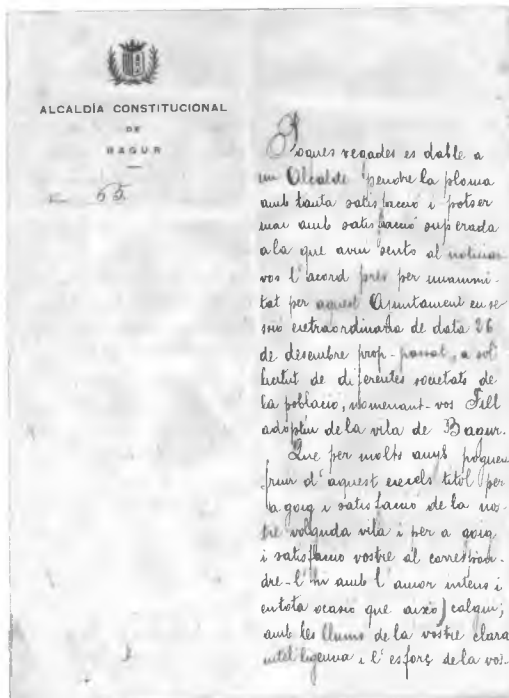 ALCALDÍA CONSTITUCIONAL
DE
BAGUR
55
Poques vegades es dable a
un Alcalde pendre la ploma
amb tanta satisfacció i potser
mai amb satisfacció superada
a la que avui sento al noticiar
vos l'acord pres per unanimi-
tat per aquest Ajuntament en se
sió extraordinaria de data 26
de desembre prop-passat, a sol
licitut de diferentes societats de
la població, nomenant-vos Fill
adoptiu de la vila de Bagur.
Que per molts anys pogueu
fruir d'aquest excels titol per
a goig i satisfacció de la nos-
tre volguda vila i per a goig
i satisfacció vostre al correspon-
dre-l'hi amb l'amor intens i
en tota ocasió que aixó calgui,
amb les llums de la vostre clara
intel·ligencia i l'esforç de la vos-